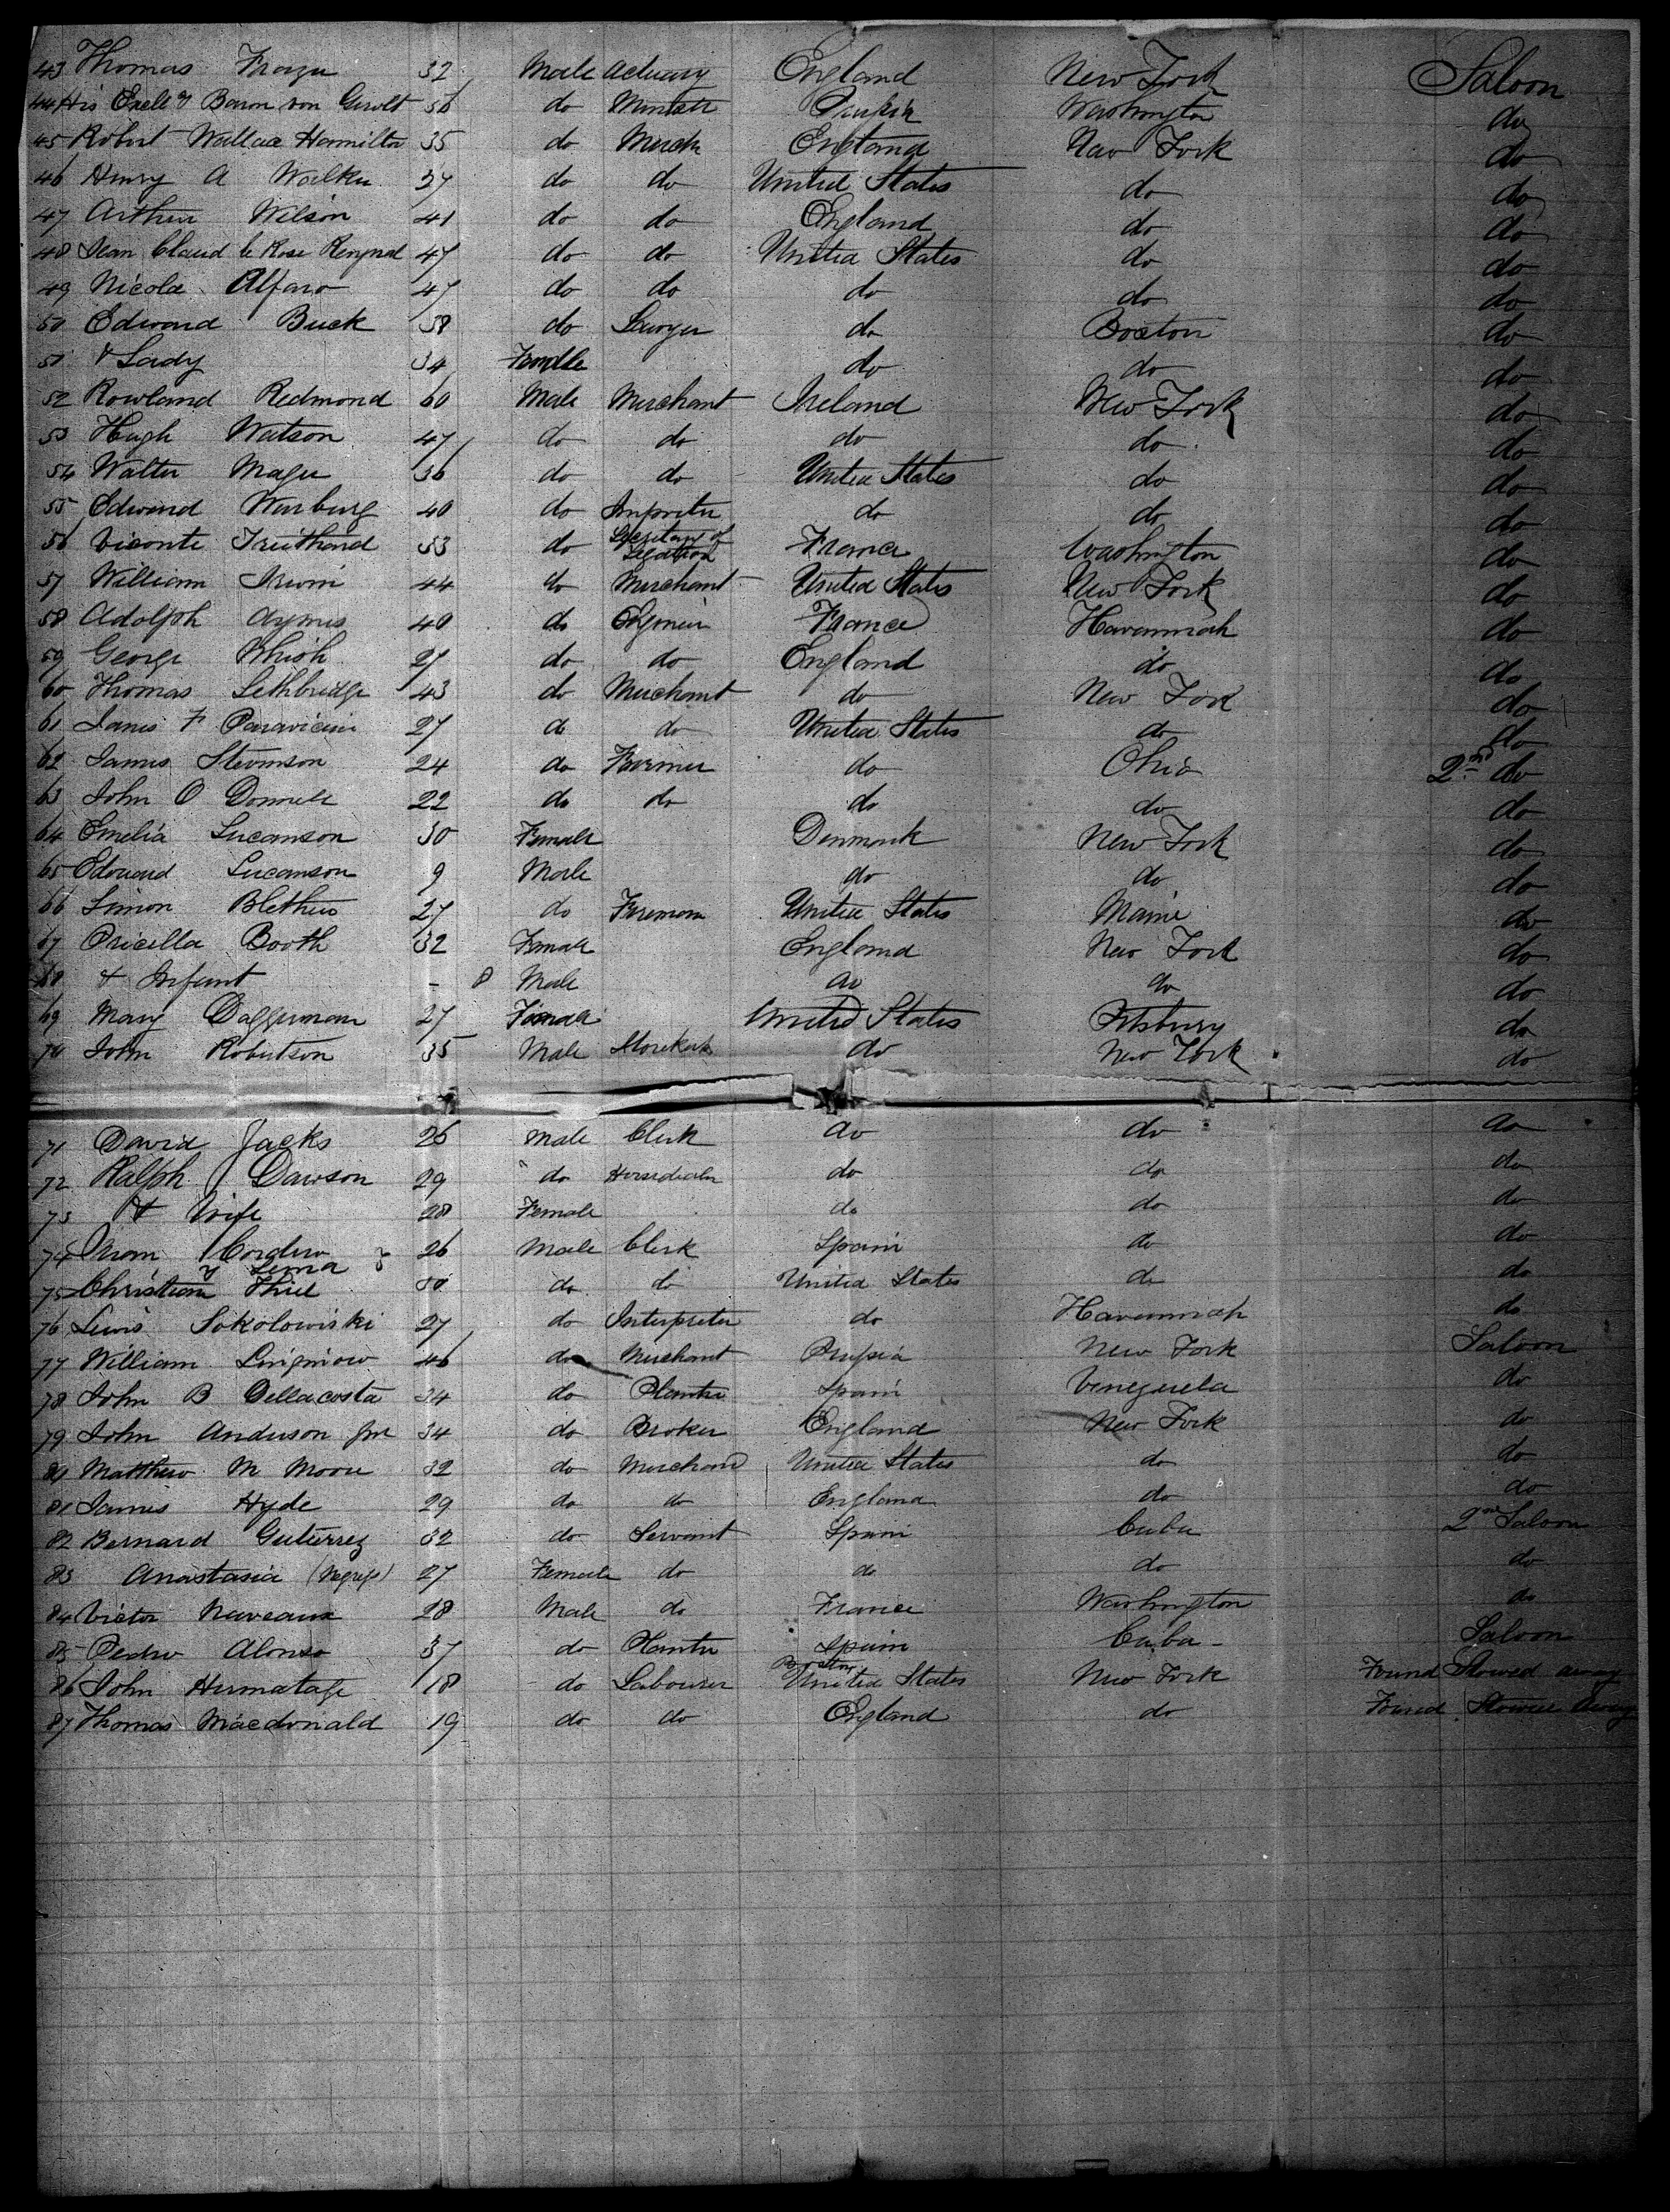 43 Thomas Frazer 32 Male Actuary England New York Saloon
44 His Excelly Baron von Gerolt 56 do Minister Prussia Washington do
45 Robert Wallace Hamilton 35 do Merch England New York do
46 Henry A Walker 37 do do United States do do
47 Arthur Wilson 41 do do England do do
48 Jean Claud le Rose 47 do do United States do do
49 Nicola Alfaro 47 do do do do do
50 Edward Buck 58 do Lawyer do Boston do
51 & Lady 34 Female do do do
52 Rowland Redmond 60 Male Merchant Ireland New York do
53 Hugh Watson 47 do do do do do
54 Walter Magee 36 do do United States do do
55 Edward Warburg 40 do do do do
56 Viconte Treithard 33 do Secretary of Legation France Washington do
57 William Irwin 44 do Merchant United States New York do
58 Adolph 40 do Engineer France Havannah do
59 George Whish 27 do do England do do
60 Thomas Lethbridge 43 do Merchant do New York do
61 James F Paravicini 27 do do United States do do
62 James Stevenson 24 do Farmer do Ohio 2nd do
63 John O Donnell 22 do do do do do
64 Emelia Lucamson 30 Female Denmark New York do
65 Edouard Lucamson 9 Male do do do
66 Simon Blethen 27 do Fireman United States Maine do
67 Pricella Booth 32 Female England New York do
68 & Infant - 8 Male do do do
69 Mary Daggerman 27 Female United States Pitsburg do
70 John Robertson 35 Male do New York do
71 David Jacks 26 Male Clerk do do do
72 Ralph Dawson 29 do Horsedealer do do do
73 & Wife 28 Female do do do
74 Cordero y Lema 26 Male Clerk Spain do do
75 Christian Thiel 50 do do United States do do
76 Lewis Sokolowiski 27 do Interpreter do Havannah do
77 William 46 do Merchant Prussia New York Saloon
78 John B Dellacosta 24 do Planter Spain Venezuela do
79 John Anderson Jnr 34 do Broker England New York do
80 Matthew M Moore 32 do Merchand United States do do
81 James Hyde 29 do do England do do
82 Bernard Gutierrez 32 do Servant Spain Cuba 2nd Saloon
83 Anastasia 27 Female do do do do
84 Victor Naveaux 28 Male do France Washington do
85 Pedro Alonso 37 do Planter Spain Cuba - Saloon
86 John Hermatage 18 do Labourer Boston United States New York Found Stowed away
87 Thomas Macdonald 19 do do England do Found Stowed away